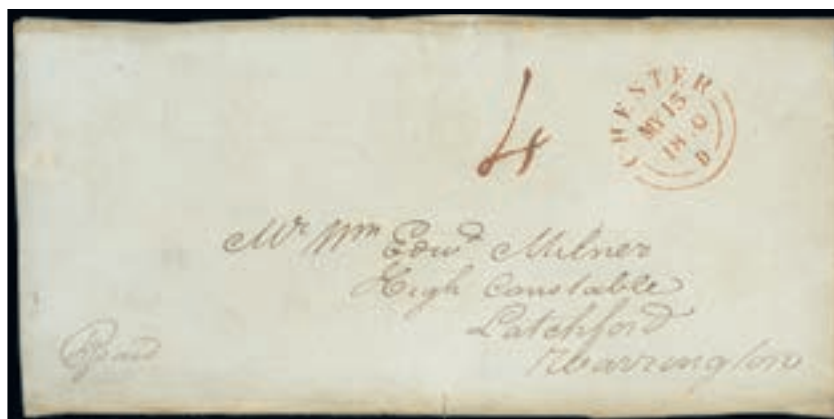 4
CHESTER
MY 15
D
Mr Wm Edwd Milner
High Constable
Latchford
Warrington